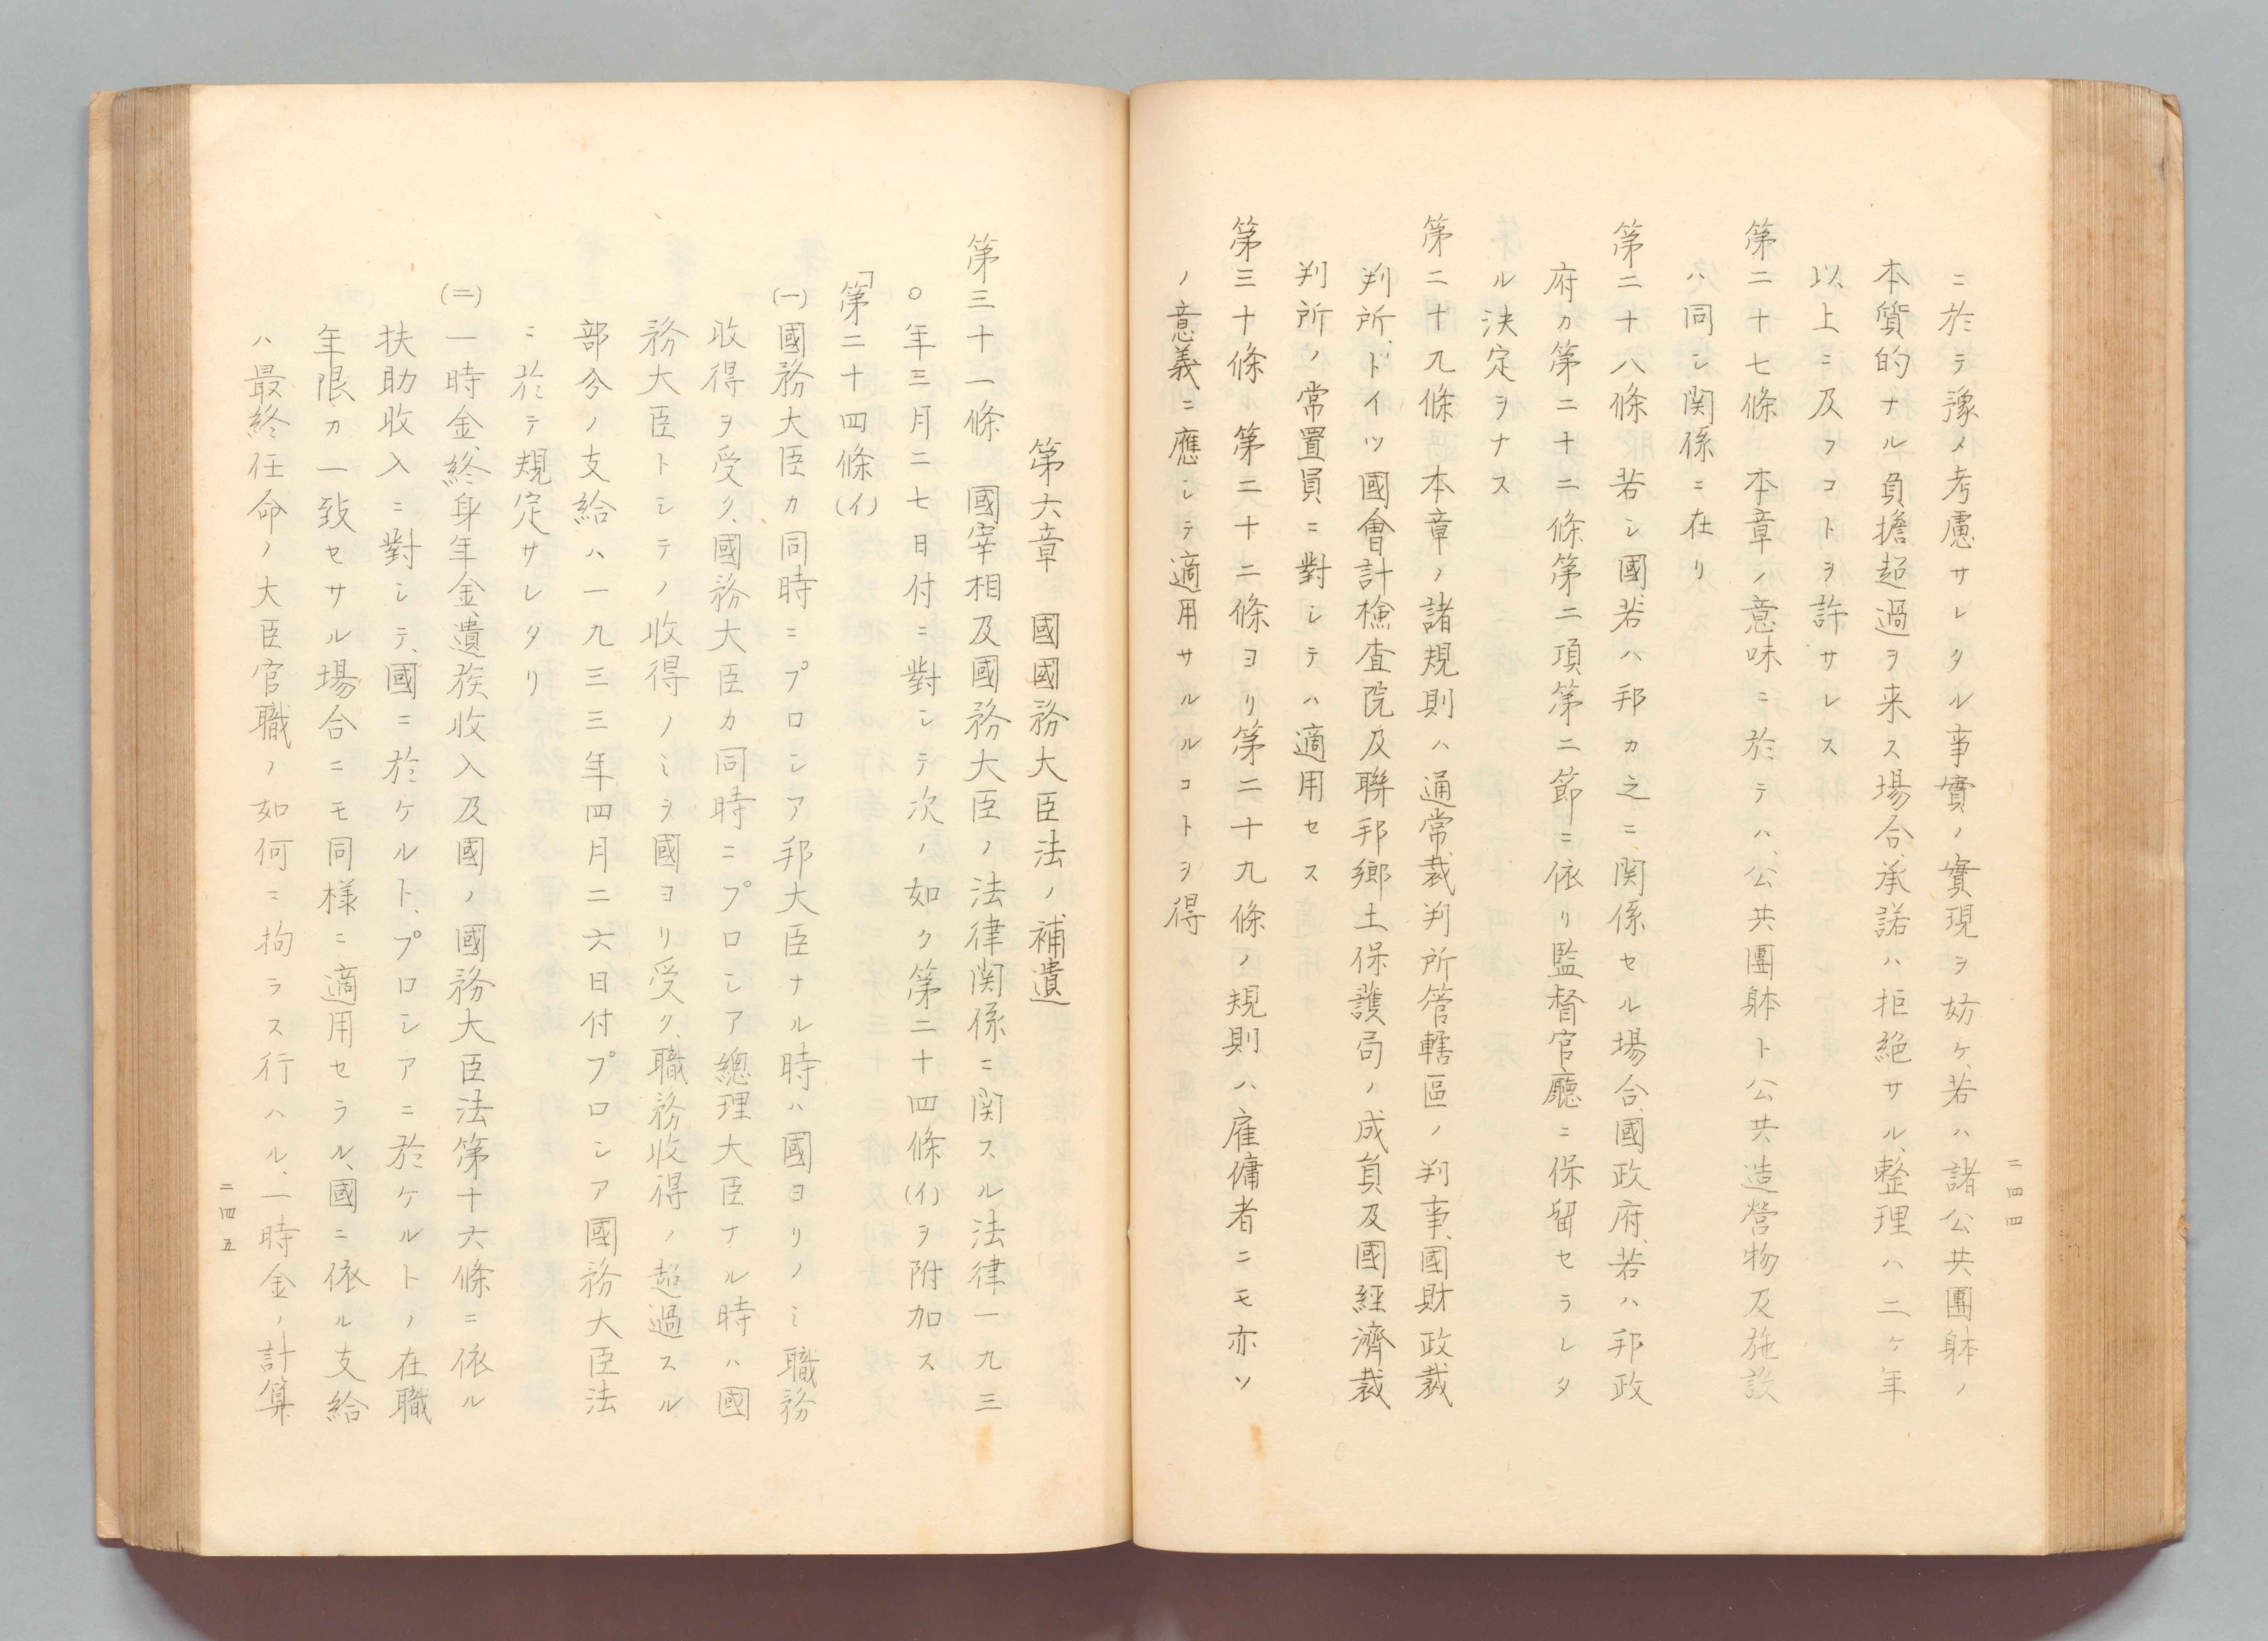 ニ於テ豫メ考慮サレタル事實ノ實現ヲ妨ケ、若ハ諸公共團躰ノ
本質的ナル負擔超過ヲ来ス場合、承諾ハ拒絶サル、整理ハ二ヶ年
以上ニ及フコトヲ許サレス
第二十七條 本章ノ意味ニ於テハ、公共團躰ト公共造營物及施設
ハ同シ関係ニ在リ
第二十八條 若シ國若ハ邦カ之ニ関係セル場合、國政府、若ハ邦政
府カ第二十二條第二項第二節ニ依リ監督官廳ニ保留セラレタ
ル決定ヲナス
第二十九條 本章ノ諸規則ハ通常裁判所管轄區ノ判事、國財政裁
判所、ドイツ國會計検査院及聯邦郷土保護局ノ成員及國經濟裁
判所ノ常置員ニ對シテハ適用セス
第三十條 第二十二條ヨリ第二十九條ノ規則ハ雇傭者ニモ亦ソ
ノ意義ニ應シテ適用サルルコトヲ得
二四四
第六章 國國務大臣法ノ補遺
第三十一條 國宰相及國務大臣ノ法律関係ニ関スル法律一九三
〇年三月二七日付ニ對シテ次ノ如ク第二十四條(イ)ヲ附加ス
「第二十四條(イ)
(一)國務大臣カ同時ニプロシア邦大臣ナル時ハ國ヨリノミ職務
收得ヲ受ク、國務大臣カ同時ニプロシア總理大臣ナル時ハ國
務大臣トシテノ收得ノミヲ國ヨリ受ク、職務收得ノ超過スル
部分ノ支給ハ一九三三年四月二六日付プロシア國務大臣法
ニ於テ規定サレタリ
(二)一時金、終身年金、遺族收入及國ノ國務大臣法第十六條ニ依ル
扶助收入ニ對シテ、國ニ於ケルト、プロシアニ於ケルトノ在職
年限カ一致セサル場合ニモ同様ニ適用セラル、國ニ依ル支給
ハ最終任命ノ大臣官職ノ如何ニ拘ラス行ハル、一時金ノ計算
二四五